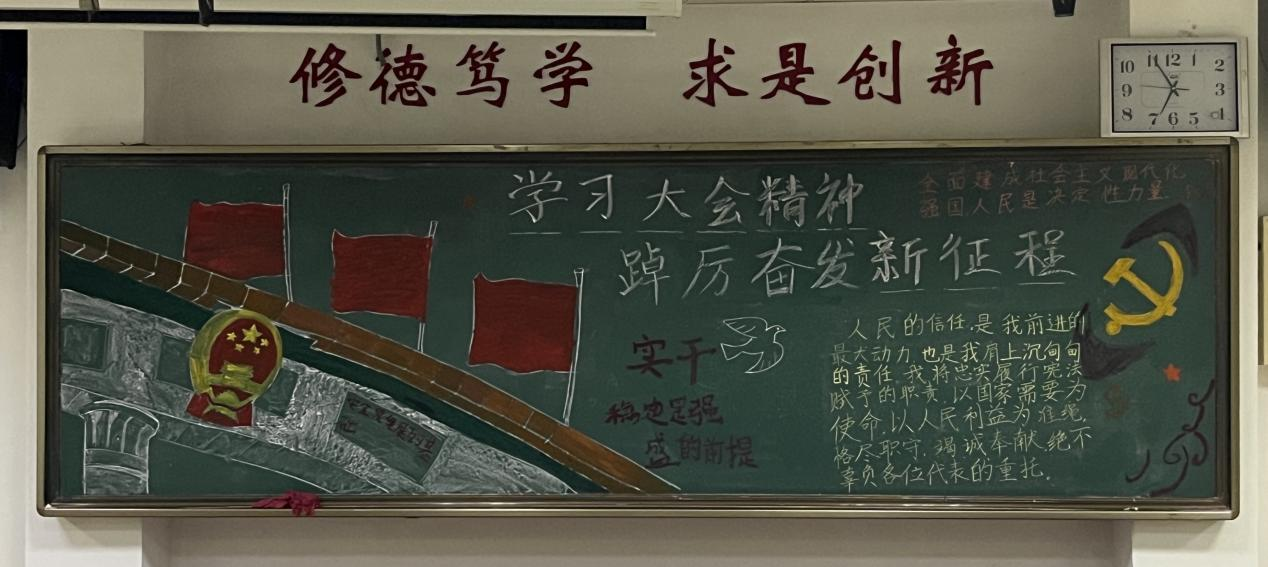 修德笃学 求是创新
10 11 12 1 2
9 3
8 7 6 5 4
学习大会精神
踔厉奋发新征程
全面建成社会主义现代化
强国人民是决定性力量
实干
稳定是强
盛的前提
人民的信任,是我前进的
最大动力,也是我肩上沉甸甸
的责任,我将忠实履行宪法
赋予的职责,以国家需要为
使命,以人民利益为准绳,
恪尽职守,竭诚奉献,绝不
辜负各位代表的重托.